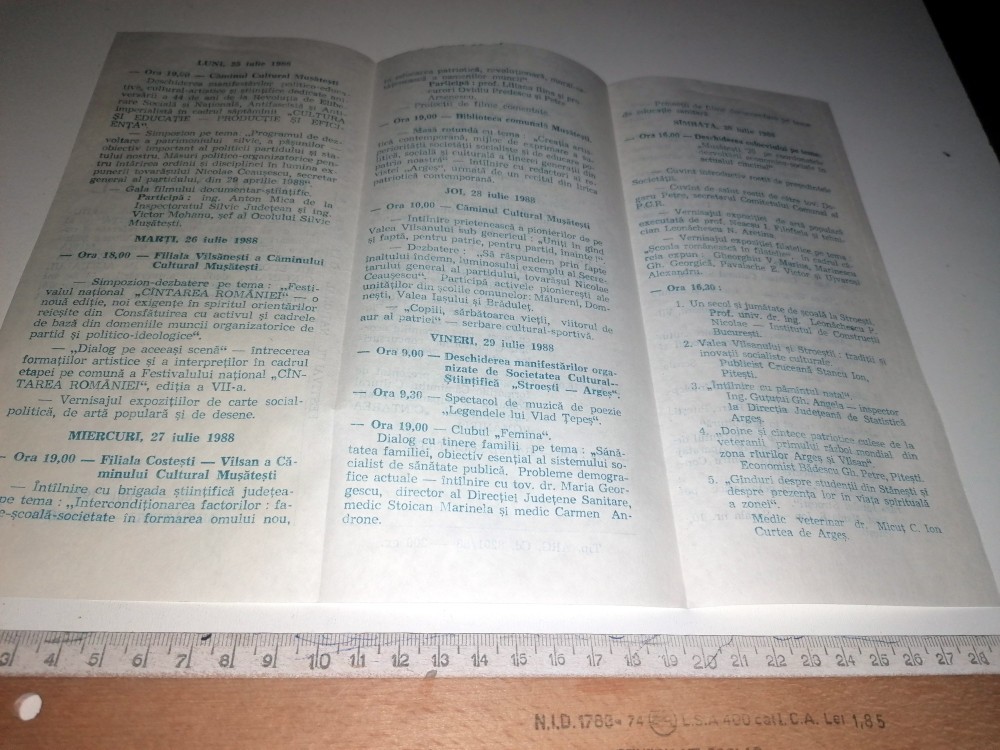 LUNI, 25 iulie 1988
— Ora 19,00 — Căminul Cultural Mușătești
Deschiderea manifestărilor politico-educa-
tive, cultural-artistice și științifice dedicate ani-
versării a 44 de ani de la Revoluția de Elibe-
rare Socială și Națională, Antifascistă și Anti-
imperialistă în cadrul săptămînii „CULTURĂ
ȘI EDUCAȚIE — PRODUCȚIE ȘI EFICI-
ENȚĂ“.
— Simpozion pe tema: „Programul de dez-
voltare a patrimoniului silvic, a pășunilor
obiectiv important al politicii partidului și sta-
tului nostru. Măsuri politico-organizatorice pen-
tru întărirea ordinii și disciplinei în lumina ex-
punerii tovarășului Nicolae Ceaușescu, secretar
general al partidului, din 29 aprilie, 1988“.
— Gala filmului documentar-științific.
Participă: ing. Anton Mica de la
Inspectoratul Silvic Județean și ing.
Victor Mohanu, șef al Ocolului Silvic
Mușătești.
MARȚI, 26 iulie 1988
— Ora 18,00 — Filiala Vîlsănești a Căminului
Cultural Mușătești.
— Simpozion-dezbatere pe tema: „Festi-
valul național „CÎNTAREA ROMÂNIEI“ — o
nouă ediție, noi exigențe în spiritul orientărilor
reieșite din Consfătuirea cu activul și cadrele
de bază din domeniile muncii organizatorice de
partid și politico-ideologice“.
— „Dialog pe aceeași scenă“ — întrecerea
formațiilor artistice și a interpreților în cadrul
etapei pe comună a Festivalului național „CÎN-
TAREA ROMÂNIEI“, ediția a VII-a.
— Vernisajul expozițiilor de carte social-
politică, de artă populară și de desene.
MIERCURI, 27 iulie 1988
— Ora 19,00 — Filiala Costești — Vîlsan a Că-
minului Cultural Mușătești
— Întîlnire cu brigada științifică județea-
pe tema: „Intercondiționarea factorilor: fa-
e-școală-societate în formarea omului nou,
în educarea patriotică, revoluționară,
Participă: prof. Liliana
Ovidiu Predescu și
— Proiecții de filme
— Ora 19,00 — Biblioteca comunală Mușătești
— Masă rotundă cu tema: „Creația
contemporană, mijloc de exprimare a
tităților societății socialiste și de educare
litică, socială și culturală a tinerei generații din
noastră“ — întîlnire cu redactori ai re-
vistei „Argeș“, urmată de un recital din lirica
patriotică contemporană.
JOI, 28 iulie 1988
— Ora 10,00 — Căminul Cultural Mușătești
— Întîlnire prietenească a pionierilor de pe
Valea Vîlsanului sub genericul: „Uniți în gînd
și faptă, pentru patrie, pentru partid, înainte!“
— Dezbatere: „Să răspundem prin fapte
înaltului îndemn, luminosului exemplu al Secre-
tarului general al partidului, tovarășul Nicolae
Ceaușescu“. Participă activele pionierești ale
unităților din școlile comunelor: Mălureni, Dom-
nești, Valea Iașului și Brăduleț.
— „Copiii, sărbătoarea vieții, viitorul de
aur al patriei“ — serbare cultural-sportivă.
VINERI, 29 iulie 1988
— Ora 9,00 — Deschiderea manifestărilor orga-
nizate de Societatea Cultural-
Științifică „Stroești — Argeș“.
— Ora 9,30 — Spectacol de muzică de poezie
„Legendele lui Vlad Țepeș“.
— Ora 19,00 — Clubul „Femina“.
Dialog cu tinere familii pe tema: „Sănă-
tatea familiei, obiectiv esențial al sistemului so-
cialist de sănătate publică. Probleme demogra-
fice actuale — întîlnire cu tov. dr. Maria Geor-
gescu, director al Direcției Județene Sanitare,
medic Stoican Marinela și medic Carmen An-
drone.
— Proiecții de filme
de educație
SÎMBĂTĂ, 30 iulie 1988
— Ora 16,00 — Deschiderea
— Cuvînt introductiv rostit de președintele
Societății.
— Cuvînt de salut rostit de către tov. Do-
garu Petre, secretarul Comitetului Comunal al
P.C.R.
— Vernisajul expoziției de artă populară
executată de prof. Stancu I. Filofteia și tehni-
cian Leonăchescu N. Aretina.
— Vernisajul expoziției filatelice pe tema:
„Școala românească în filatelie“, în cadrul că-
reia expun: Gheorghiu V. Marius, Marinescu
Gh. Georgică, Pavalache E. Victor și Ujvarosi
Alexandru.
— Ora 16,30:
1. Un secol și jumătate de școală la Stroești.
Prof. univ. dr. ing. Leonăchescu P.
Nicolae — Institutul de Construcții
București.
2. Valea Vîlsanului și Stroeștii: tradiții și
inovații socialiste culturale.
Publicist Cruceană Stanca Ion,
Pitești.
3. „Întîlnire cu pămîntul natal“.
Ing. Guțuțui Gh. Angela — inspector
la Direcția Județeană de Statistică
Argeș.
4. „Doine și cîntece patriotice culese de la
veteranii primului război mondial din
zona rîurilor Argeș și Vîlsan“.
Economist Bădescu Gh. Petre, Pitești.
5. „Gînduri despre studenții din Stănești și
despre prezența lor în viața spirituală
a zonei“.
Medic veterinar dr. Micuț C. Ion
Curtea de Argeș.
3 4 5 6 7 8 9 10 11 12 13 14 15 16 17 18 19 20 21 22 23 24 25 26 27 28
N.I.D. 1788-74 L.S.A 400 cal I. C.A. Lei 1,85